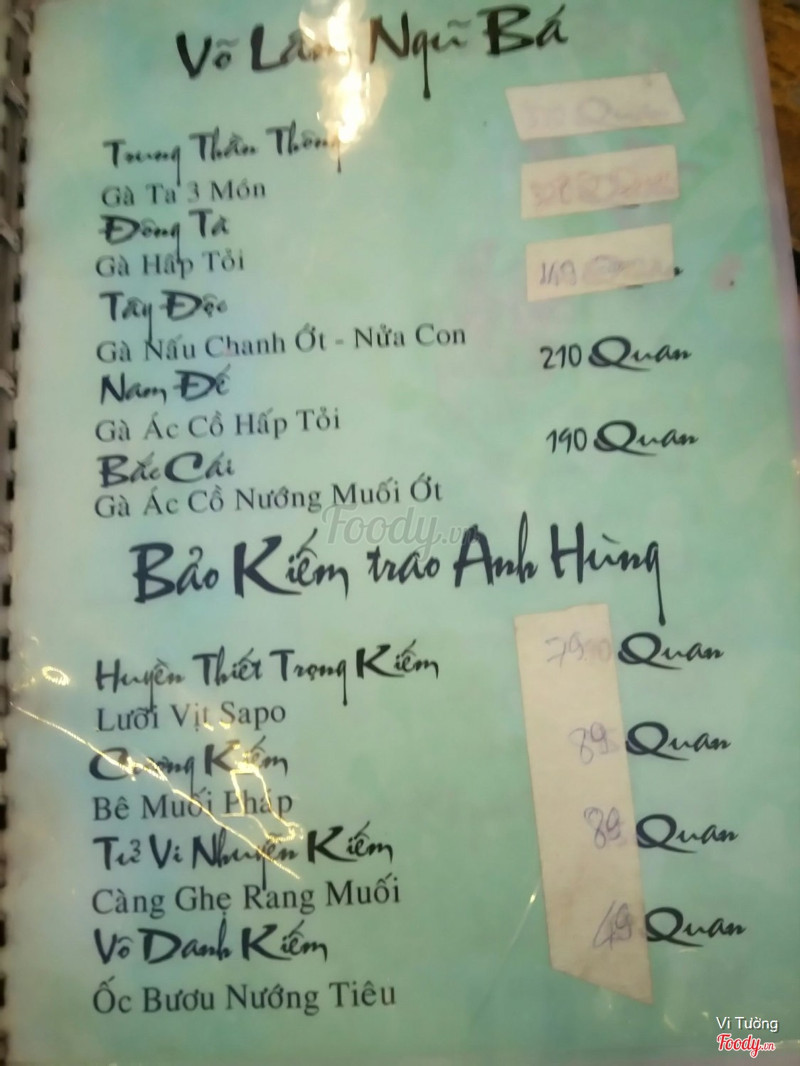 Võ Lâm Ngũ Bá
Trung Thần Thông
Gà Ta 3 Món
Đông Tà
Gà Hấp Tỏi
Tây Độc
149
Gà Nấu Chanh Ớt - Nửa Con
210 Quan
Nam Đế
Gà Ác Cồ Hấp Tỏi
190 Quan
Bắc Cái
Gà Ác Cồ Nướng Muối Ớt
Foody.vn
Bảo Kiếm trao Anh Hùng
Huyền Thiết Trọng Kiếm
79 Quan
Lưỡi Vịt Sapo
Cương Kiếm
89 Quan
Bê Muối Pháp
Tử Vi Nhuyễn Kiếm
89 Quan
Càng Ghẹ Rang Muối
Vô Danh Kiếm
49 Quan
Ốc Bươu Nướng Tiêu
Vi Tường
Foody.vn